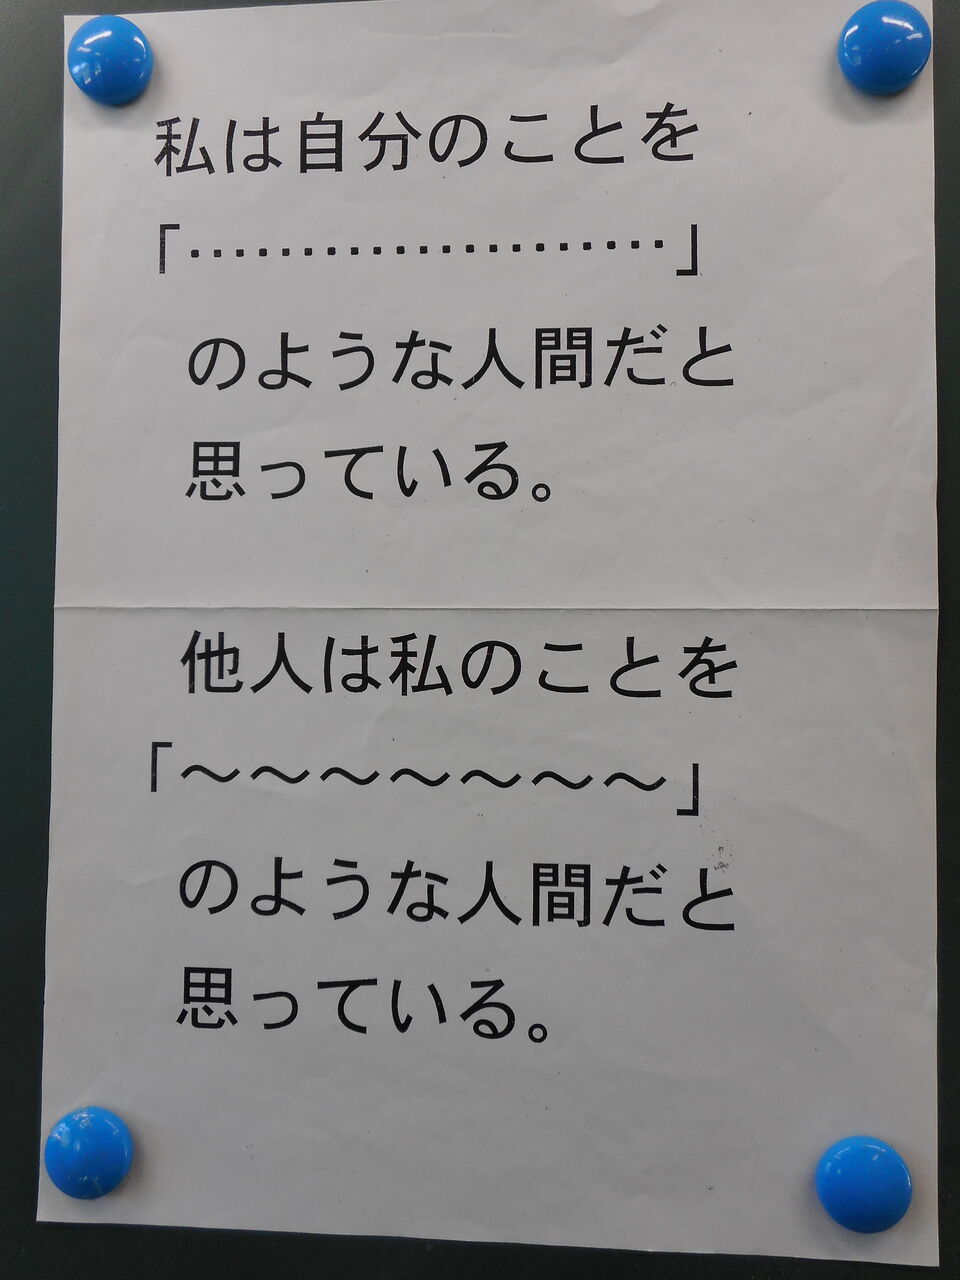 私は自分のことを
「･････････････････････」
のような人間だと
思っている。
他人は私のことを
「～～～～～～～」
のような人間だと
思っている。